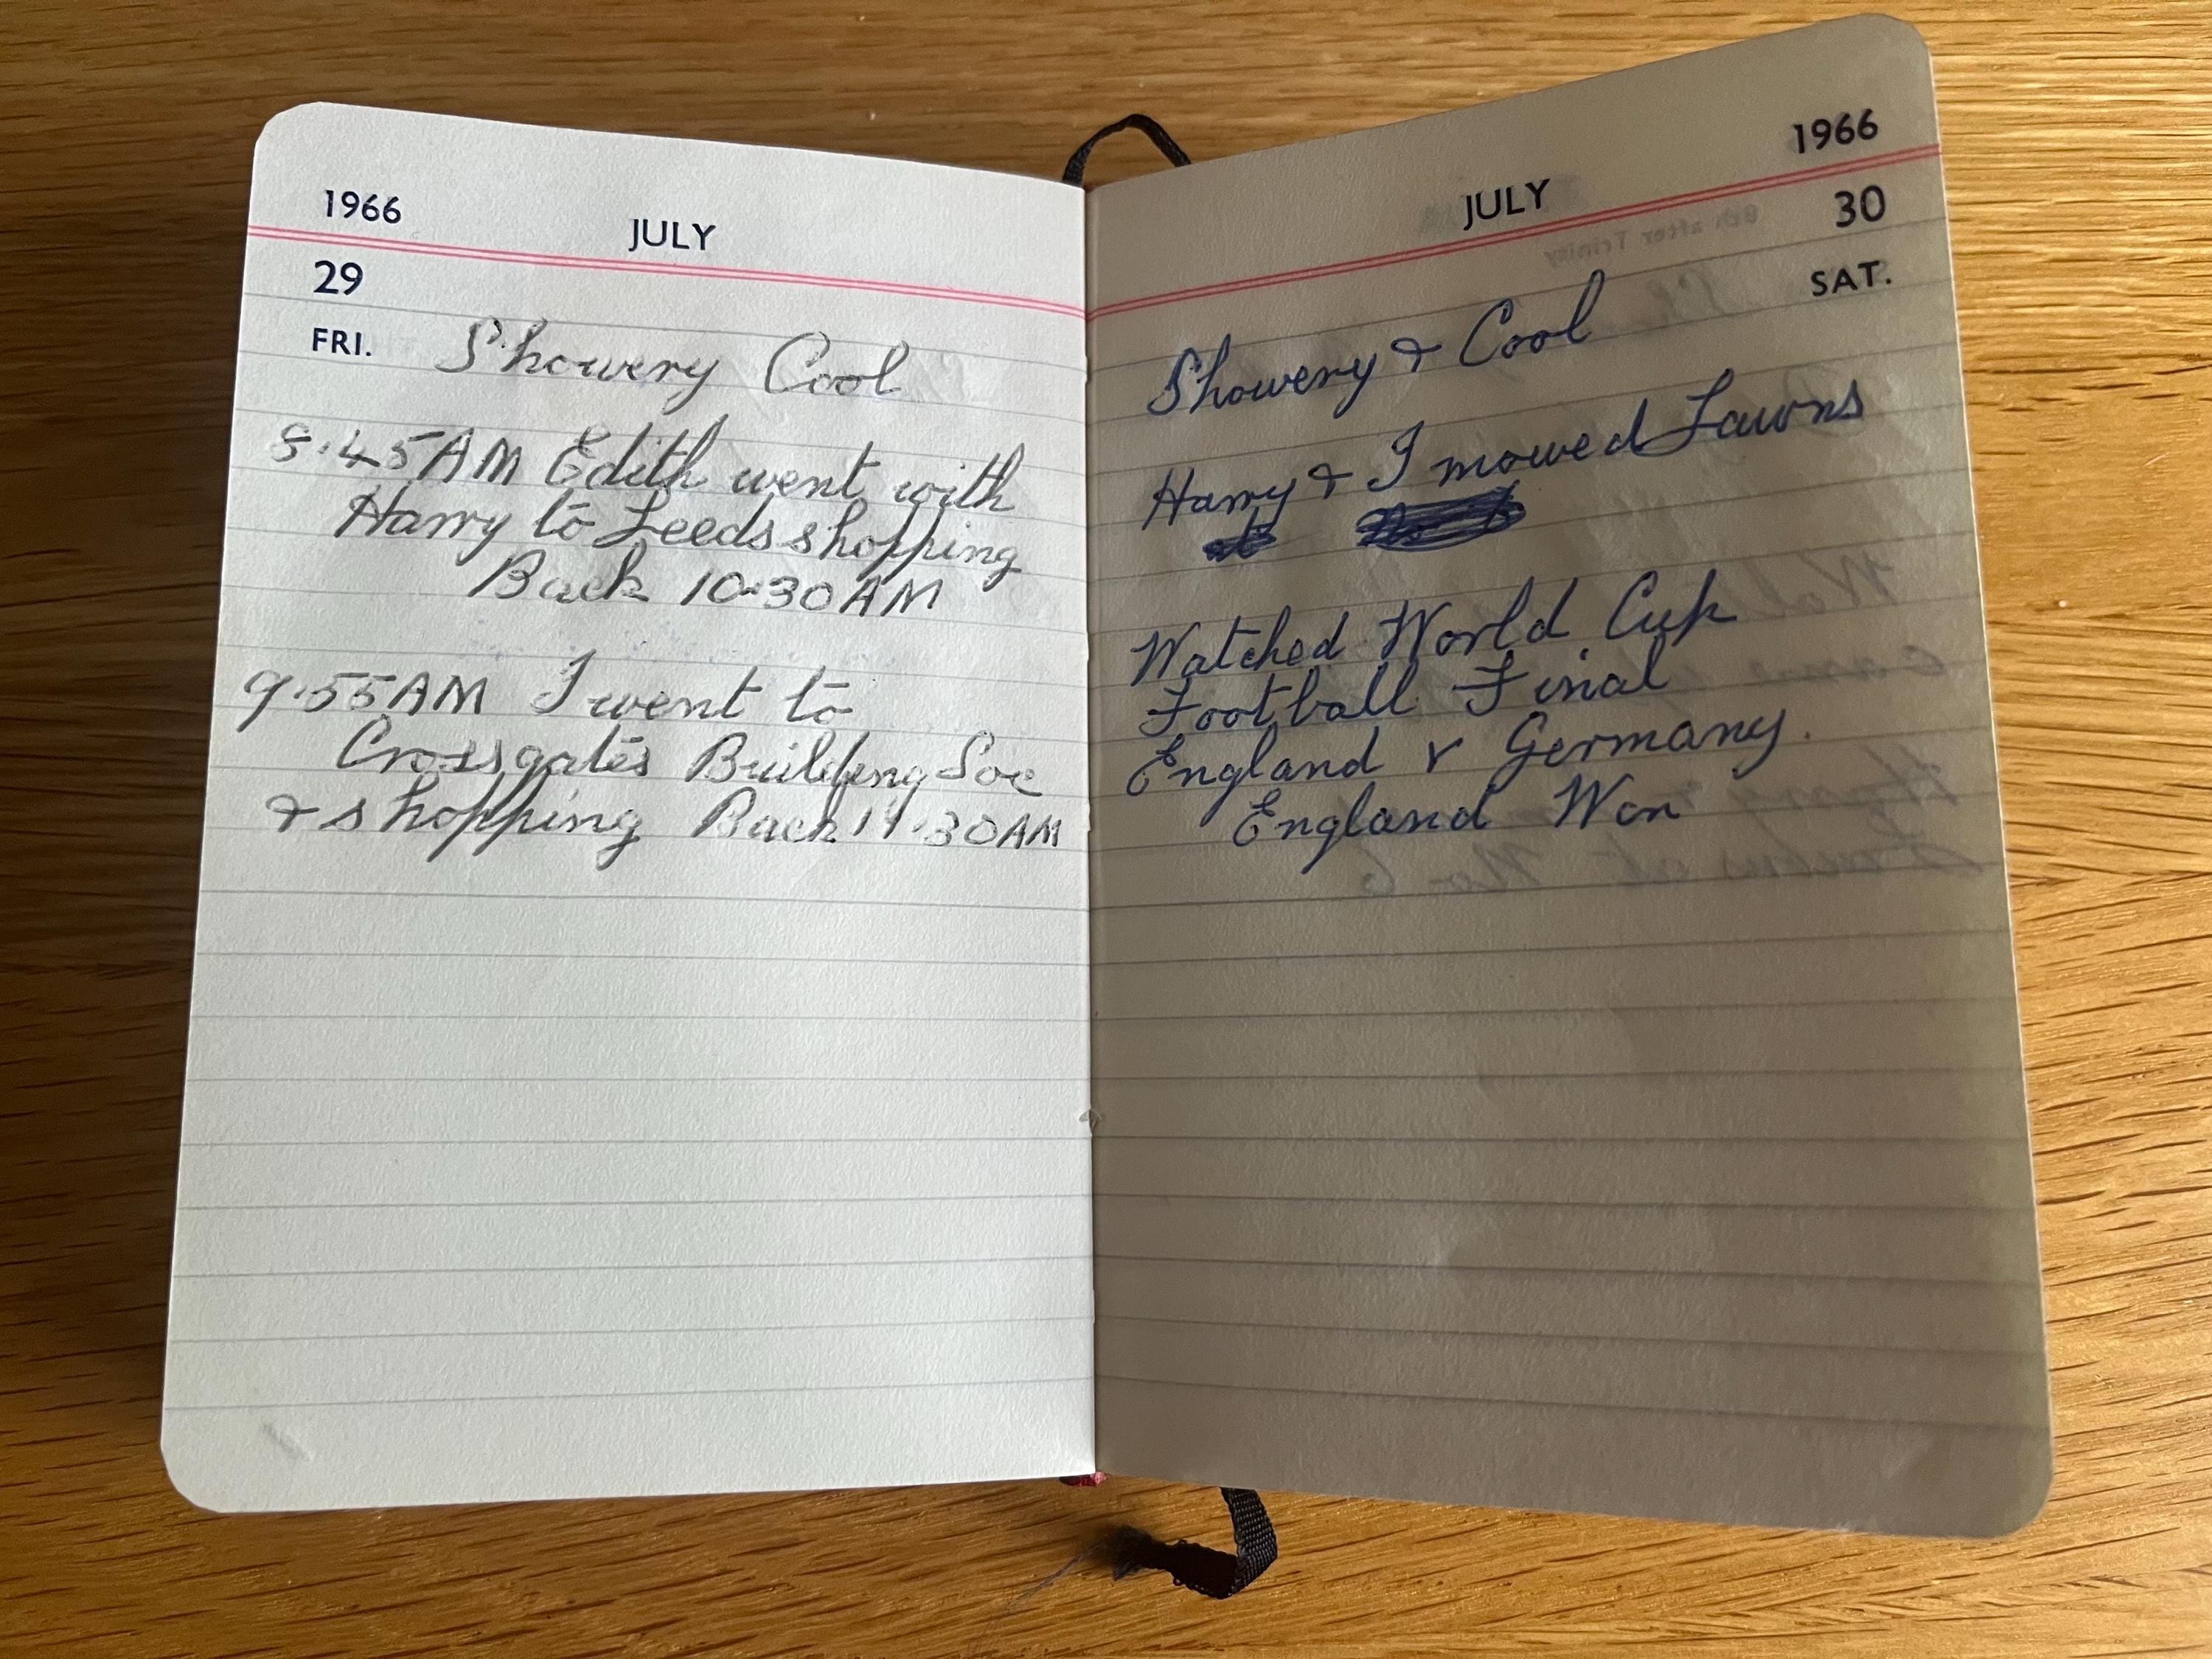 1966 JULY
29
FRI. Showery Cool
8.45AM Edith went with
Harry to Leeds shopping
Back 10.30AM
9.55AM I went to
Crossgates Building Soc
& shopping Back 11.30AM
JULY 1966
30
SAT.
Showery & Cool
Harry & I mowed Lawns
at
Watched World Cup
Football Final
England v Germany.
England Won
8th after Trinity